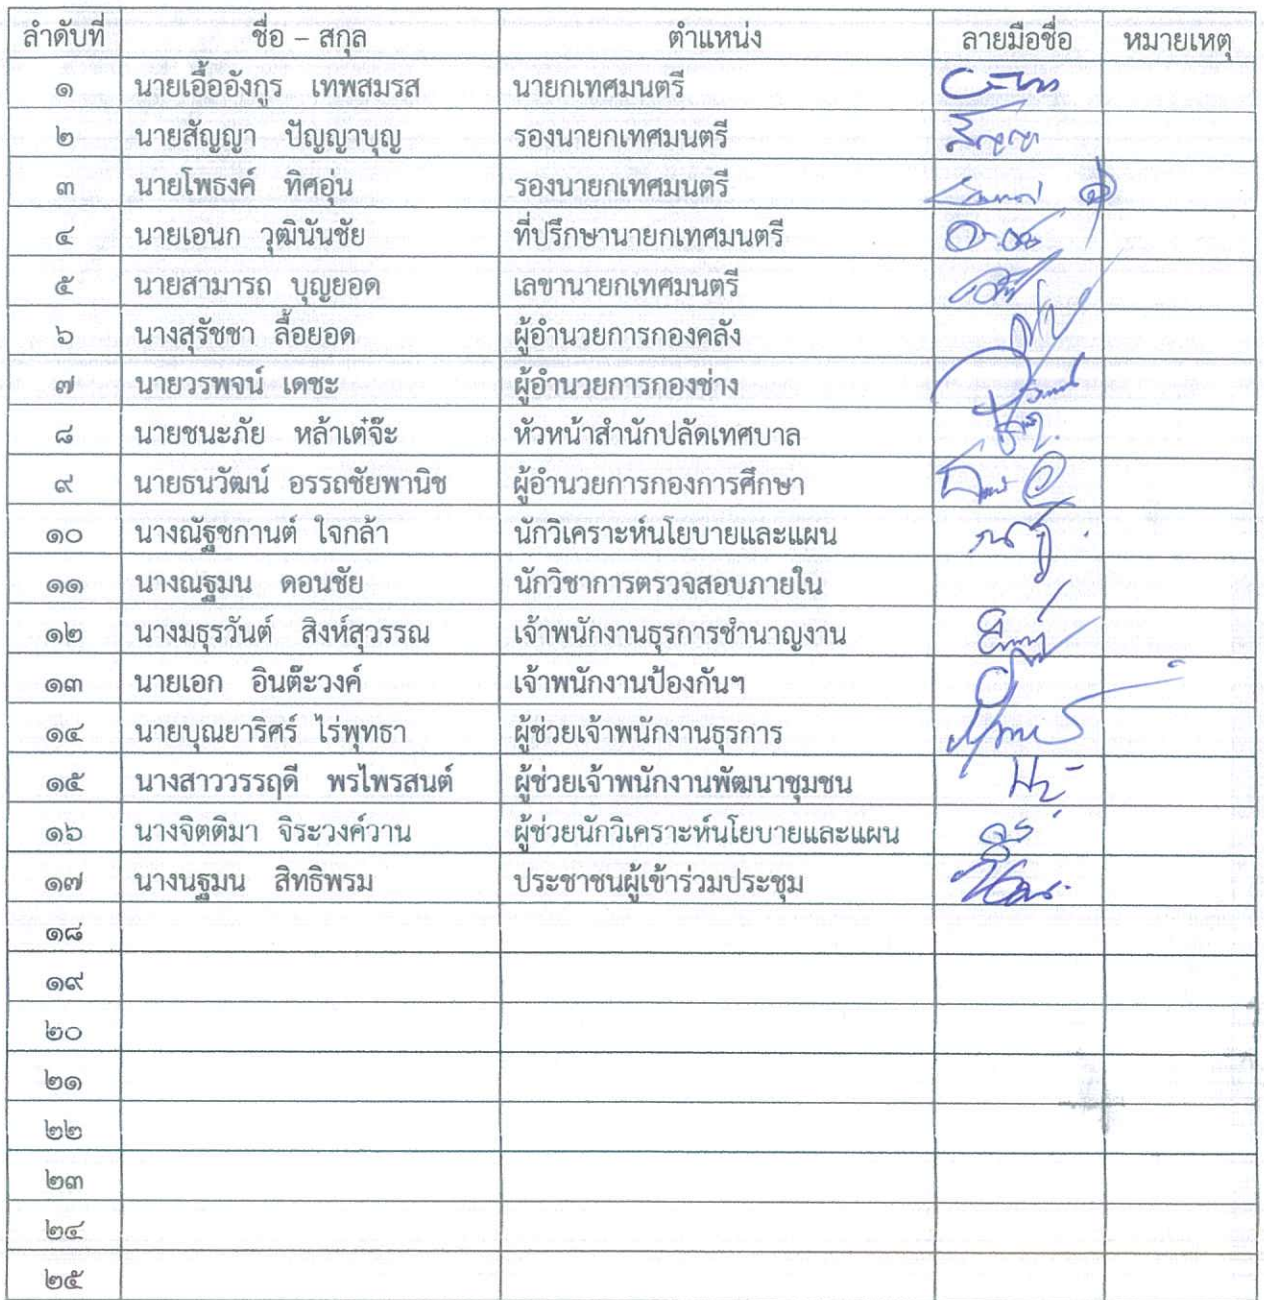 ลำดับที่ ชื่อ – สกุล ตำแหน่ง ลายมือชื่อ หมายเหตุ
๑ นายเอื้ออังกูร เทพสมรส นายกเทศมนตรี
๒ นายสัญญา ปัญญาบุญ รองนายกเทศมนตรี สัญญา
๓ นายโพธงค์ ทิศอุ่น รองนายกเทศมนตรี
๔ นายเอนก วุฒินันชัย ที่ปรึกษานายกเทศมนตรี
๕ นายสามารถ บุญยอด เลขานายกเทศมนตรี
๖ นางสุรัชชา ลื้อยอด ผู้อำนวยการกองคลัง
๗ นายวรพจน์ เดชะ ผู้อำนวยการกองช่าง
๘ นายชนะภัย หล้าเต๋จ๊ะ หัวหน้าสำนักปลัดเทศบาล
๙ นายธนวัฒน์ อรรถชัยพานิช ผู้อำนวยการกองการศึกษา
๑๐ นางณัฐชกานต์ ใจกล้า นักวิเคราะห์นโยบายและแผน
๑๑ นางณฐมน ดอนชัย นักวิชาการตรวจสอบภายใน
๑๒ นางมธุรวันต์ สิงห์สุวรรณ เจ้าพนักงานธุรการชำนาญงาน
๑๓ นายเอก อินต๊ะวงค์ เจ้าพนักงานป้องกันฯ
๑๔ นายบุณยาริศร์ ไร่พุทธา ผู้ช่วยเจ้าพนักงานธุรการ
๑๕ นางสาววรรฤดี พรไพรสนต์ ผู้ช่วยเจ้าพนักงานพัฒนาชุมชน
๑๖ นางจิตติมา จิระวงค์วาน ผู้ช่วยนักวิเคราะห์นโยบายและแผน
๑๗ นางนฐมน สิทธิพรม ประชาชนผู้เข้าร่วมประชุม
๑๘
๑๙
๒๐
๒๑
๒๒
๒๓
๒๔
๒๕